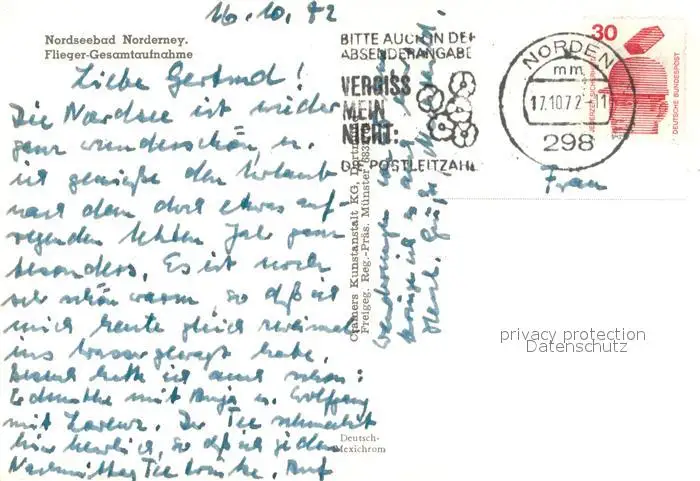 16.10.72
Nordseebad Norderney.
Flieger-Gesamtaufnahme
Liebe Gertrud!
Die Nordsee ist wieder
ganz wunderschön, u.
ich genieße den Urlaub
nach dem doch etwas auf-
regenden letzten Jahr ganz
besonders. Es ist noch
sehr schön warm, so daß ich
mich heute gleich zweimal
ins Wasser gewagt habe.
Besuch hatte ich auch schon:
mit Anja u. Wolfgang
mit Lorenz. Der Tee schmeckt
hier herrlich, so daß ich jeden
Nachmittag Tee trinke. Auf
BITTE AUCH IN DER
ABSENDERANGABE
VERGISS
MEIN
NICHT:
DIE POSTLEITZAHL
NORDEN
mm
17.10.72
298
30
JEDERZEIT SICHERHEIT
DEUTSCHE BUNDESPOST
Frau
Cramers Kunstanstalt KG, Dortmund
Freigeg. Reg.-Präs. Münster
Wanderungen
Herzl. Grüße
privacy protection
Datenschutz
Deutsch-
Mexichrom